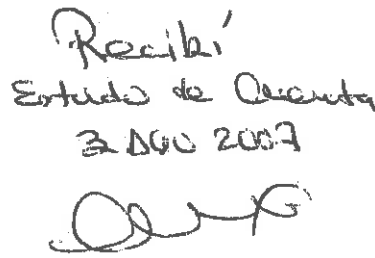 Recibí
Estado de Cuenta
3 AGO 2007